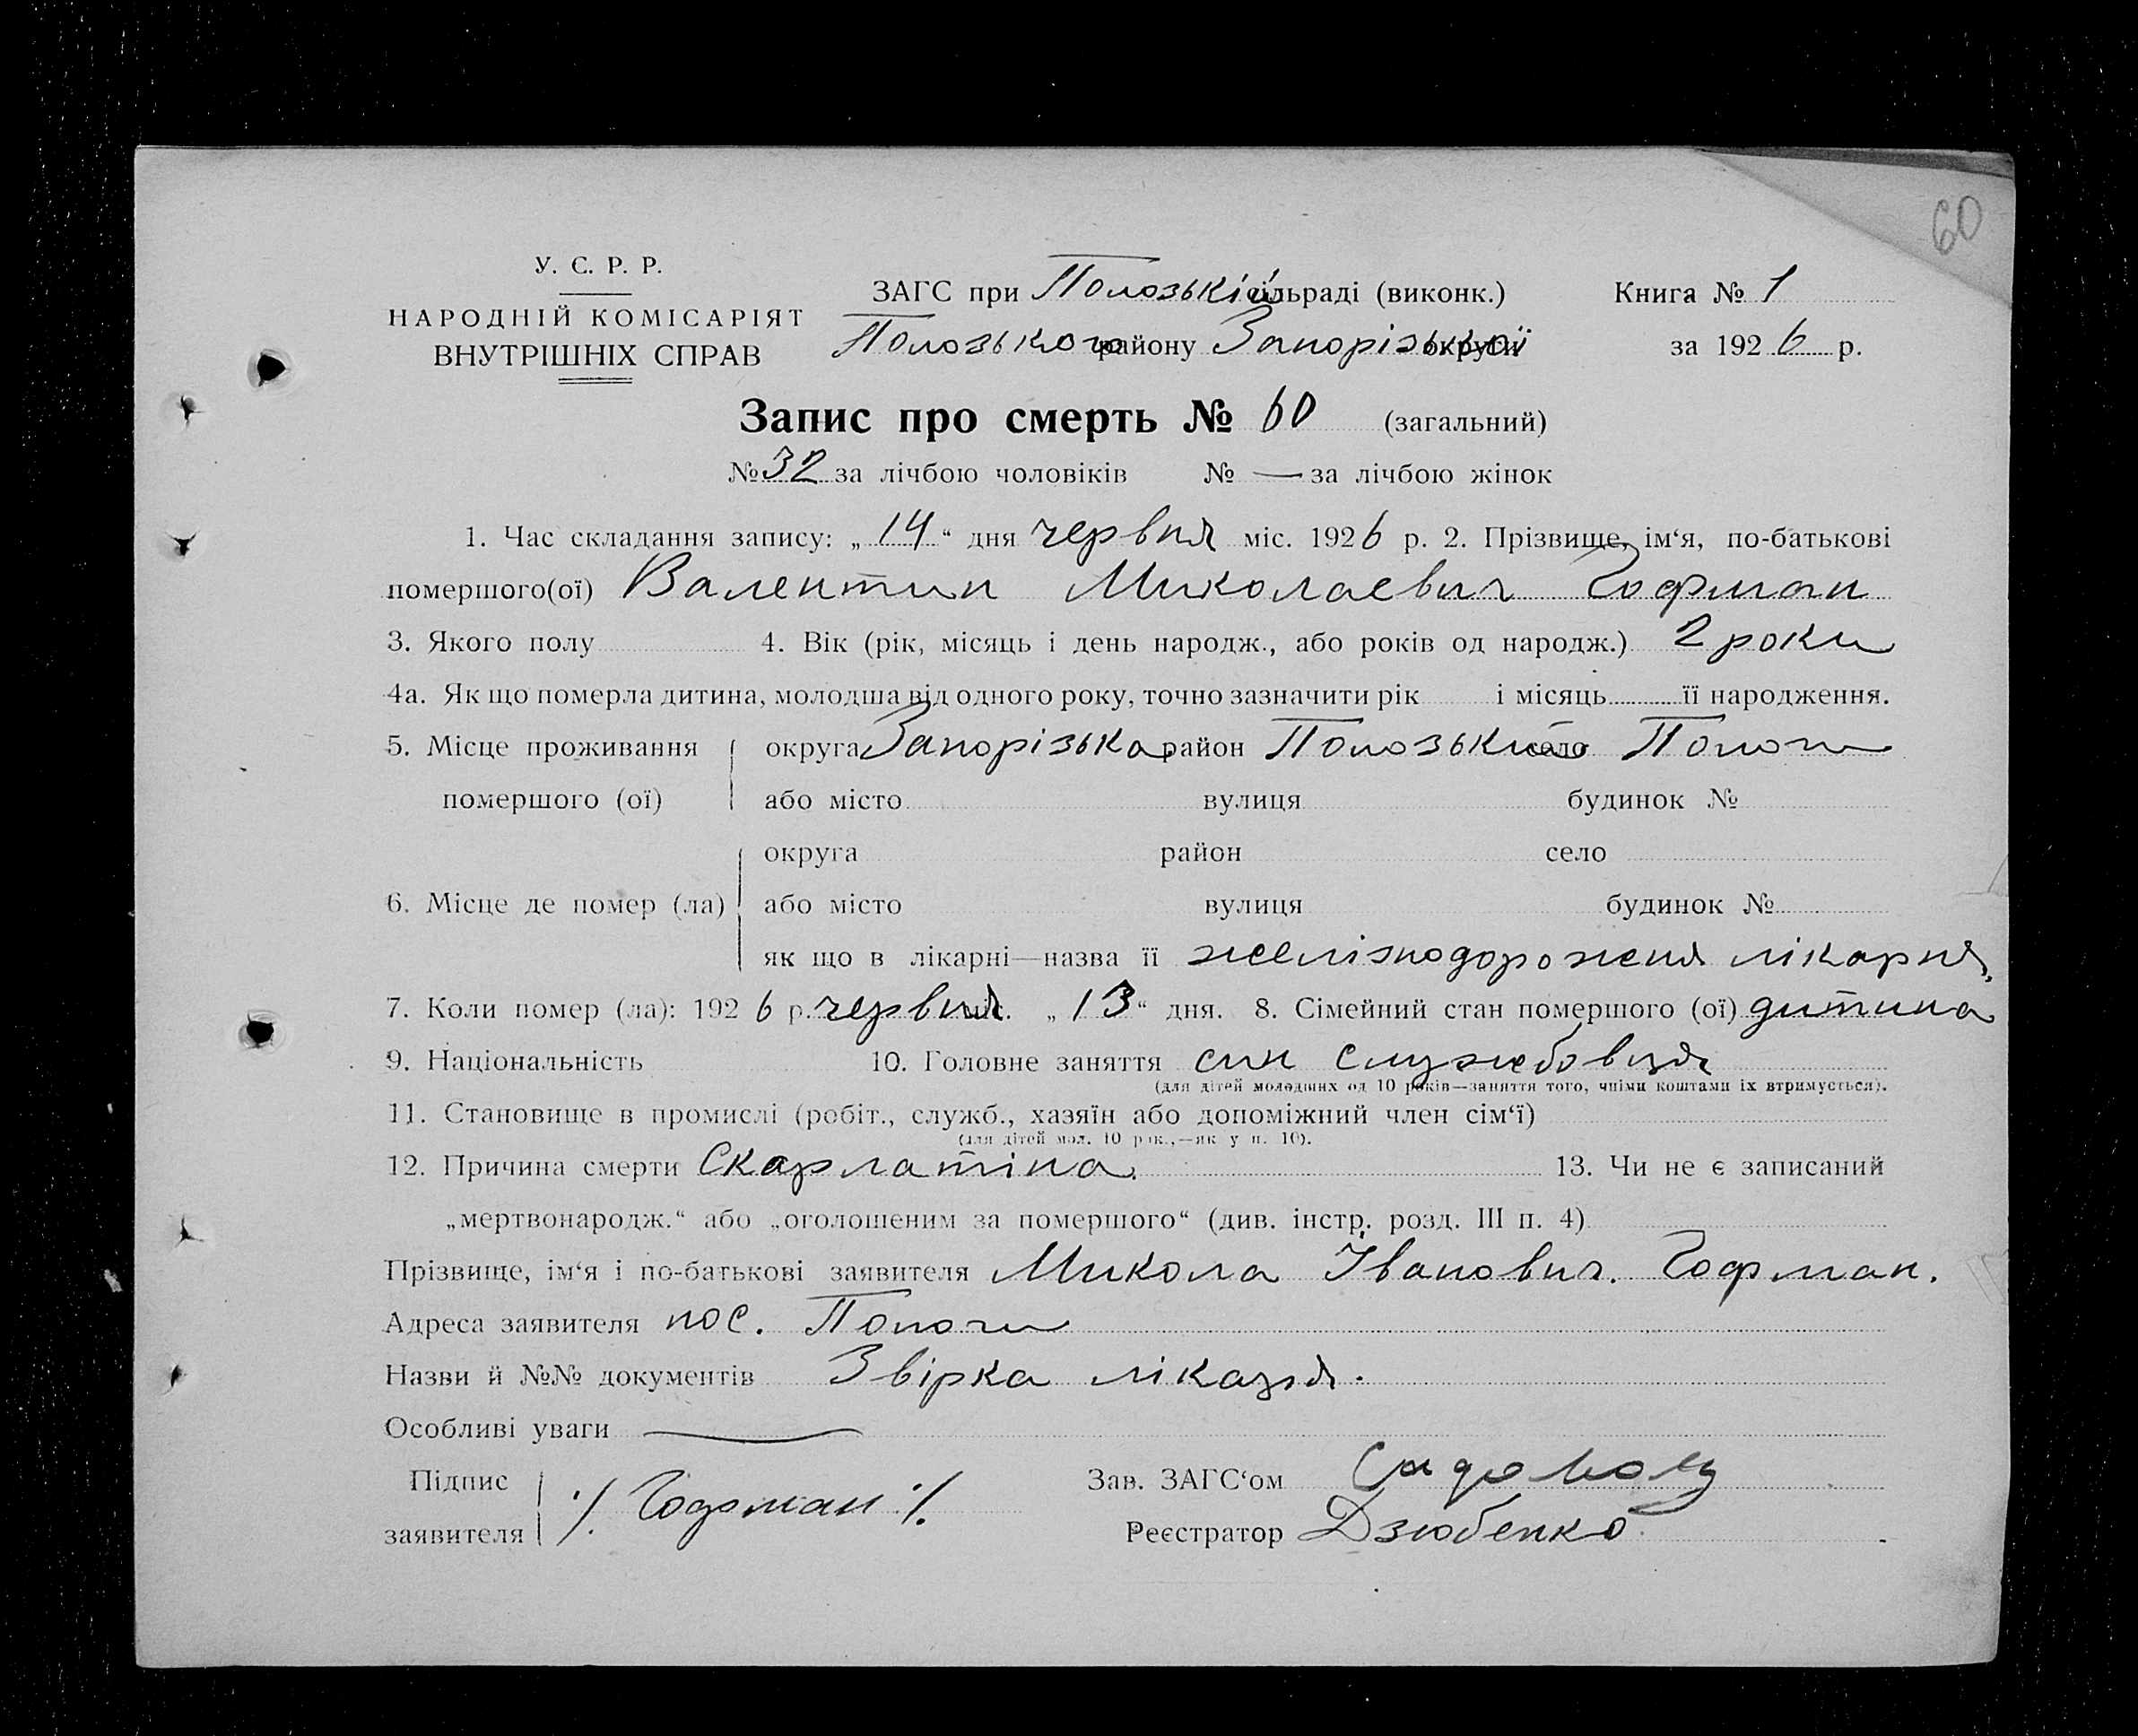 60
У. С. Р. Р.
НАРОДНІЙ КОМІСАРІЯТ
ВНУТРІШНІХ СПРАВ
ЗАГС при Полозькій сільраді (виконк.)
Полозького району Запорізької округи
Книга № 1
за 1926 р.
Запис про смерть № 60 (загальний)
№ 32 за лічбою чоловіків № — за лічбою жінок
1. Час складання запису: „14“ дня червня міс. 1926 р. 2. Прізвище, ім‘я, по-батькові
помершого(ої) Валентин Миколаевич Гофман
3. Якого полу 4. Вік (рік, місяць і день народж., або років од народж.) 2 роки
4а. Як що померла дитина, молодша від одного року, точно зазначити рік і місяць її народження.
5. Місце проживання округа Запорізька район Полозький село Пологи
помершого (ої) або місто вулиця будинок №
округа район село
6. Місце де помер (ла) або місто вулиця будинок №
як що в лікарні—назва її желізнодорожня лікарня
7. Коли помер (ла): 1926 р. червня міс. „13“ дня. 8. Сімейний стан помершого (ої) дитина
9. Національність 10. Головне заняття син службовця
(для дітей молодших од 10 років—заняття того, чиїми коштами їх втримується).
11. Становище в промислі (робіт., служб., хазяїн або допоміжний член сім‘ї)
(для дітей мол. 10 рок.,—як у п. 10).
12. Причина смерти Скарлатіна. 13. Чи не є записаний
„мертвонародж.“ або „оголошеним за помершого“ (див. інстр. розд. III п. 4)
Прізвище, ім‘я і по-батькові заявителя Микола Іванович. Гофман.
Адреса заявителя пос. Пологи
Назви й №№ документів Звірка лікаря.
Особливі уваги —
Підпис
заявителя ./. Гофман ./.
Зав. ЗАГС‘ом
Реєстратор Дзюбенко